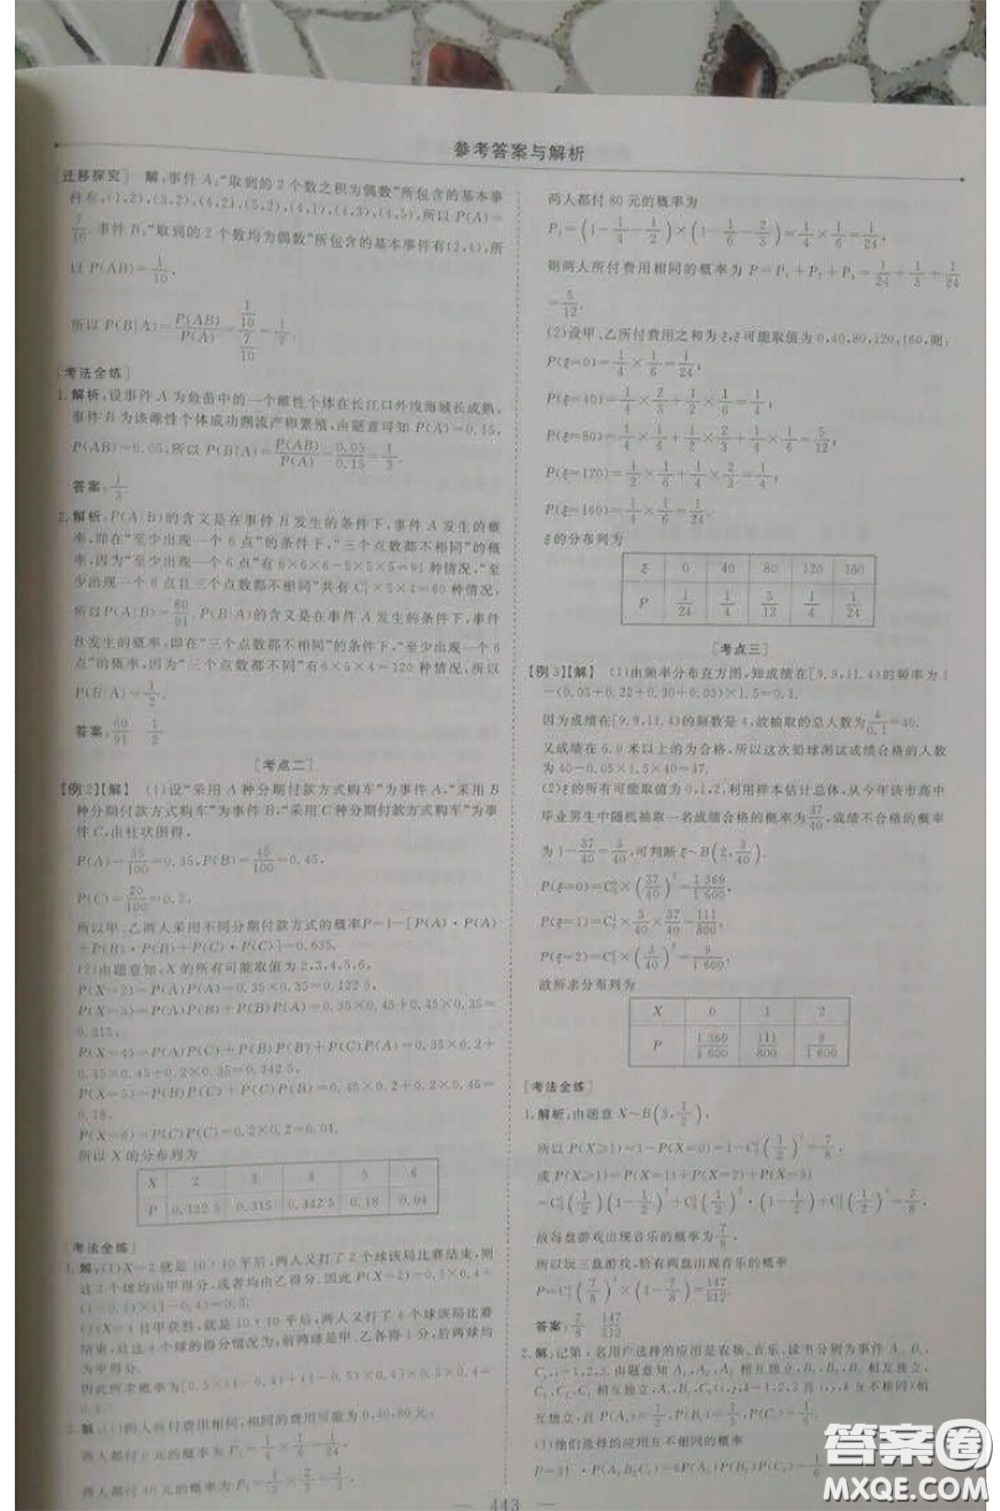 参考答案与解析
[迁移探究] 解,事件A,“取到的2个数之积为偶数”所包含的基本事
件有,(1,2),(3,2),(4,2),(5,2),(4,1),(4,3),(4,5),所以P(A)=
7/10.事件B,“取到的2个数均为偶数”所包含的基本事件有(2,4),所
以P(AB)=1/10.
所以P(B|A)=P(AB)/P(A)=(1/10)/(7/10)=1/7.
[考法全练]
1.解析,设事件A为鱼苗中的一个雌性个体在长江口外浅海域长成熟,
事件B为该雌性个体成功溯流产卵繁殖,由题意可知P(A)=0.15,
P(AB)=0.05,所以P(B|A)=P(AB)/P(A)=0.05/0.15=1/3.
答案:1/3
2.解析,P(A|B)的含义是在事件B发生的条件下,事件A发生的概
率,即在“至少出现一个6点”的条件下,“三个点数都不相同”的概
率,因为“至少出现一个6点”有6×6×6-5×5×5=91种情况,“至
少出现一个6点且三个点数都不相同”共有C¹₃×5×4=60种情况,
所以P(A|B)=60/91.P(B|A)的含义是在事件A发生的条件下,事件
B发生的概率,即在“三个点数都不相同”的条件下,“至少出现一个6
点”的概率,因为“三个点数都不同”有6×5×4=120种情况,所以
P(B|A)=1/2.
答案:60/91 1/2
[考点二]
[例2][解] (1)设“采用A种分期付款方式购车”为事件A,“采用B
种分期付款方式购车”为事件B,“采用C种分期付款方式购车”为事
件C,由柱状图得,
P(A)=35/100=0.35,P(B)=45/100=0.45,
P(C)=20/100=0.2,
所以甲、乙两人采用不同分期付款方式的概率P=1-[P(A)·P(A)
+P(B)·P(B)+P(C)·P(C)]=0.635.
(2)由题意知,X的所有可能取值为2,3,4,5,6,
P(X=2)=P(A)P(A)=0.35×0.35=0.122 5,
P(X=3)=P(A)P(B)+P(B)P(A)=0.35×0.45+0.45×0.35=
0.315,
P(X=4)=P(A)P(C)+P(B)P(B)+P(C)P(A)=0.35×0.2+
0.45×0.45+0.2×0.35=0.342 5,
P(X=5)=P(B)P(C)+P(C)P(B)=0.45×0.2+0.2×0.45=
0.18,
P(X=6)=P(C)P(C)=0.2×0.2=0.04.
所以X的分布列为
X 2 3 4 5 6
P 0.122 5 0.315 0.342 5 0.18 0.04
[考法全练]
1.解,(1)X=2就是10:10平后,两人又打了2个球该局比赛结束,则
这2个球均由甲得分,或者均由乙得分.因此P(X=2)=0.5×0.4+
(1-0.5)×(1-0.4)=0.5.
(2)X=4且甲获胜,就是10:10平后,两人又打了4个球该局比赛
结束,且这4个球的得分情况为,前两球是甲、乙各得1分,后两球均
为甲得分.
因此所求概率为[0.5×(1-0.4)+(1-0.5)×0.4]×0.5×0.4=
0.1.
2.解,(1)两人所付费用相同,相同的费用可能为0,40,80元,
两人都付0元的概率为P₁=1/4×1/6=1/24,
两人都付40元的概率为P₂=1/2×2/3=1/3,
两人都付80元的概率为
P₃=(1-1/4-1/2)×(1-1/6-2/3)=1/4×1/6=1/24,
则两人所付费用相同的概率为P=P₁+P₂+P₃=1/24+1/3+1/24
=5/12.
(2)设甲、乙所付费用之和为ξ,ξ可能取值为0,40,80,120,160,则:
P(ξ=0)=1/4×1/6=1/24,
P(ξ=40)=1/4×2/3+1/2×1/6=1/4,
P(ξ=80)=1/4×1/6+1/2×2/3+1/4×1/6=5/12,
P(ξ=120)=1/2×1/6+1/4×2/3=1/4,
P(ξ=160)=1/4×1/6=1/24.
ξ的分布列为
ξ 0 40 80 120 160
P 1/24 1/4 5/12 1/4 1/24
[考点三]
[例3][解] (1)由频率分布直方图,知成绩在[9.9,11.4)的频率为1
-(0.05+0.22+0.30+0.03)×1.5=0.1.
因为成绩在[9.9,11.4)的频数是4,故抽取的总人数为4/0.1=40.
又成绩在6.9米以上的为合格,所以这次铅球测试成绩合格的人数
为40-0.05×1.5×40=37.
(2)ξ的所有可能取值为0,1,2,利用样本估计总体,从今年该市高中
毕业男生中随机抽取一名成绩合格的概率为37/40,成绩不合格的概率
为1-37/40=3/40,可判断ξ~B(2,3/40).
P(ξ=0)=C⁰₂×(37/40)²=1 369/1 600,
P(ξ=1)=C¹₂×3/40×37/40=111/800,
P(ξ=2)=C²₂×(3/40)²=9/1 600,
故所求分布列为
X 0 1 2
P 1 369/1 600 111/800 9/1 600
[考法全练]
1.解析,由题意X~B(3,1/2),
所以P(X≥1)=1-P(X=0)=1-C⁰₃(1/2)³=7/8,
或P(X≥1)=P(X=1)+P(X=2)+P(X=3)
=C¹₃(1/2)(1-1/2)²+C²₃(1/2)²·(1-1/2)+C³₃(1/2)³=7/8,
故每盘游戏出现音乐的概率为7/8,
所以玩三盘游戏,恰有两盘出现音乐的概率
P=C²₃(7/8)²×(1-7/8)=147/512.
答案:7/8 147/512
2.解,记第i名用户选择的应用是农场、音乐、读书分别为事件Aᵢ、Bᵢ、
Cᵢ,i=1,2,3,由题意知A₁,A₂,A₃相互独立,B₁,B₂,B₃相互独立,
C₁,C₂,C₃相互独立,
互独立,且P(Aᵢ)=1/2,P(Bᵢ)=1/3,P(Cᵢ)=1/6.
(1)他们选择的应用互不相同的概率
P=3!·P(A₁B₂C₃)=6P(A₁)P(B₂)P(C₃)=1/6
443
答案圈
MXQE.COM